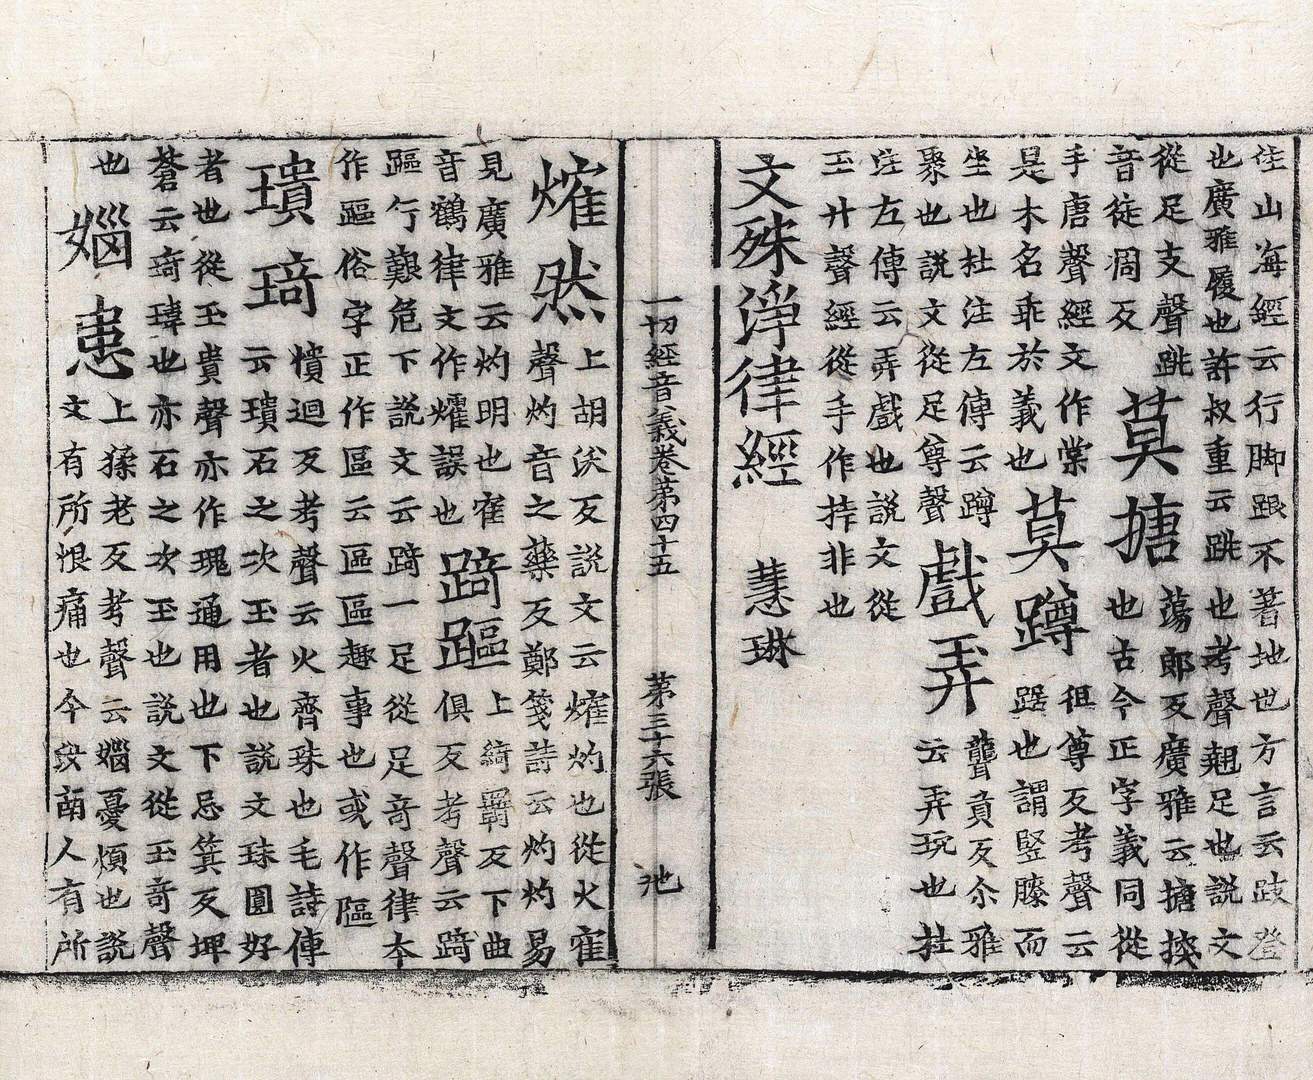 注山海經云行脚跟不著地也方言云跂登
也廣雅履也許叔重云跳也考聲翹足也說文
從足支聲跳
音徒凋反
莫搪
蕩郎反廣雅云搪揬
也古今正字義同從
手唐聲經文作棠
是木名乖於義也
莫蹲
徂尊反考聲云
踞也謂竪膝而
坐也杜注左傳云蹲
聚也說文從足尊聲
戲弄
聾貢反尒雅
云弄玩也杜
注左傳云弄戲也說文從
玉廾聲經從手作挊非也
文殊淨律經　慧琳
一切經音義卷第四十五　第三十六張　池
㸌然
上胡沃反說文云㸌灼也從火隺
聲灼音之藥反鄭箋詩云灼灼易
見廣雅云灼明也隺
音鶴律文作耀誤也
踦䠓
上綺羈反下曲
俱反考聲云踦
䠓行艱危下說文云踦一足從足奇聲律本
作䠓俗字正作區云區區趣事也或作傴
璝琦
憒迴反考聲云火齊珠也毛詩傳
云璝石之次玉者也說文珠圓好
者也從玉貴聲亦作瑰通用也下忌箕反埤
蒼云琦瑋也亦石之次玉也說文從玉奇聲
也
惱恚
上猱老反考聲云惱憂煩也說
文有所恨痛也今汝南人有所